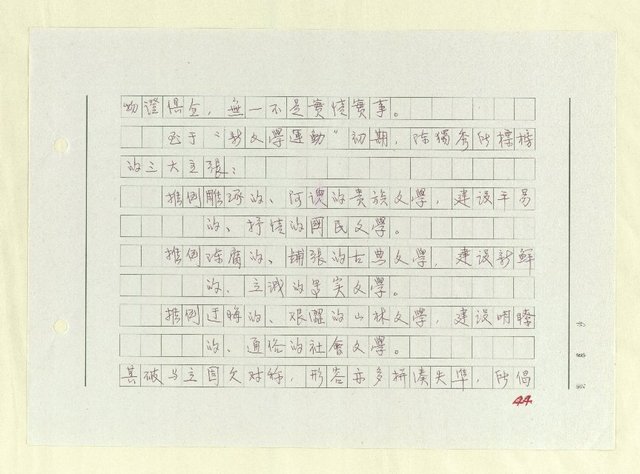 物證俱全，無一不是實情實事。
至于“新文學運動”初期，陳獨秀所標榜
的三大主張：
推倒雕琢的、阿諛的貴族文學，建設平易
的、抒情的國民文學。
推倒陳腐的、鋪張的古典文學，建設新鮮
的、立誠的写实文學。
推倒迂晦的、艰澀的山林文學，建設明瞭
的、通俗的社會文學。
其破与立固欠对称，形容亦多拼湊失準，所倡
44